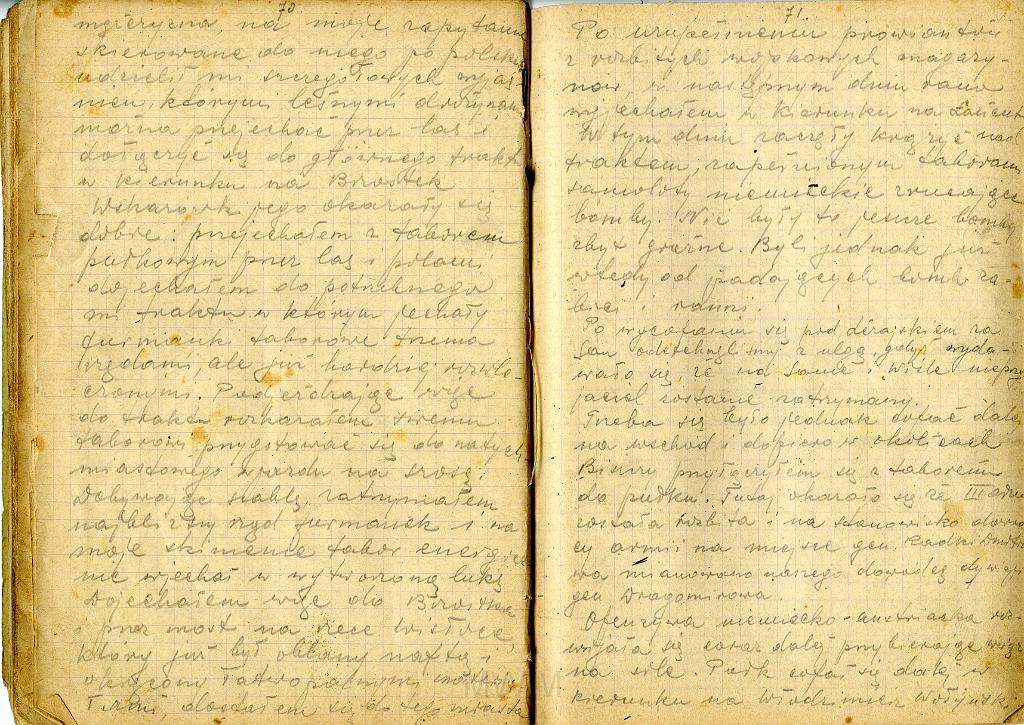 70
mężczyzna, na moje zapytanie
skierowane do niego po polsku
udzielił mi szczegółowych wyjaś-
nień, którymi leśnymi dróżynami
można przejechać przez las i
dołączyć się do głównego traktu
w kierunku na Brzostek
Wskazówki jego okazały się
dobre: przejechałem z taborem
pułkowym przez las i polami
dojechałem do potrzebnego
mi traktu w którym jechały
furmanki taborowe trzema
rzędami, ale już bardziej rozwlo-
czonymi. Podjeżdżając więc
do traktu rozkazałem swemu
taborowi przygotować się do natych-
miastowego wjazdu na szosę i
dobywając szablę, zatrzymałem
najbliższy rząd furmanek i na
moje skinienie tabor energicz
nie wjechał w wytworzoną lukę
Dojechałem więc do Brzostka
i przez most na rzece Wisłoce,
który już był oblany naftą i
okręcono łatwopalnymi mater-
iami, dostałem się do tego miasta
71.
Po uzupełnieniu prowiantów
z rozbitych wojskowych magazy-
nów, w następnym dniu rano
wyjechałem w kierunku na Łańcut
W tym dniu zaczęły krążyć nad
traktem, zapełnionym taborami
samoloty niemieckie zrucające
bomby. Nie były to jeszcze bomby
zbyt groźne. Byli jednak już
wtedy od padających bomb za-
bici i ranni.
Po wycofaniu się pod za
San odetchnęliśmy z ulgą, gdyż wyda-
wało się że na Sanie i Wiśle nieprzy
jaciel zostanie zatrzymany.
Trzeba się było jednak cofać dalej
na wschód i dopiero w okolicach
przyłączyłem się z taborem
do pułku. Tutaj okazało się że III armia
została rozbita i na stanowisko dowód
cy armii na miejsce gen. Radki Dmitrie
wa mianowano naszego dowódcę dywizji
gen Dragomirowa.
Ofenzywa niemiecko-austriacka roz-
wijała się coraz dalej przybierając wciąż
na sile. Pułk cofał się dalej w
kierunku na Włodzimierz Wołyński